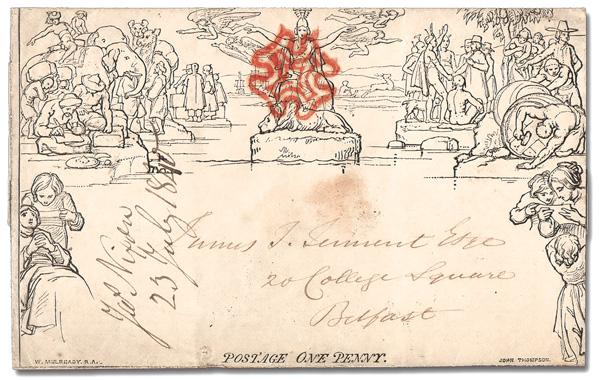 Jas Niven
23 July 1840
James T. Tennent Esqe
20 College Square
Belfast
W. MULREADY. R.A.
POSTAGE ONE PENNY.
JOHN THOMPSON.